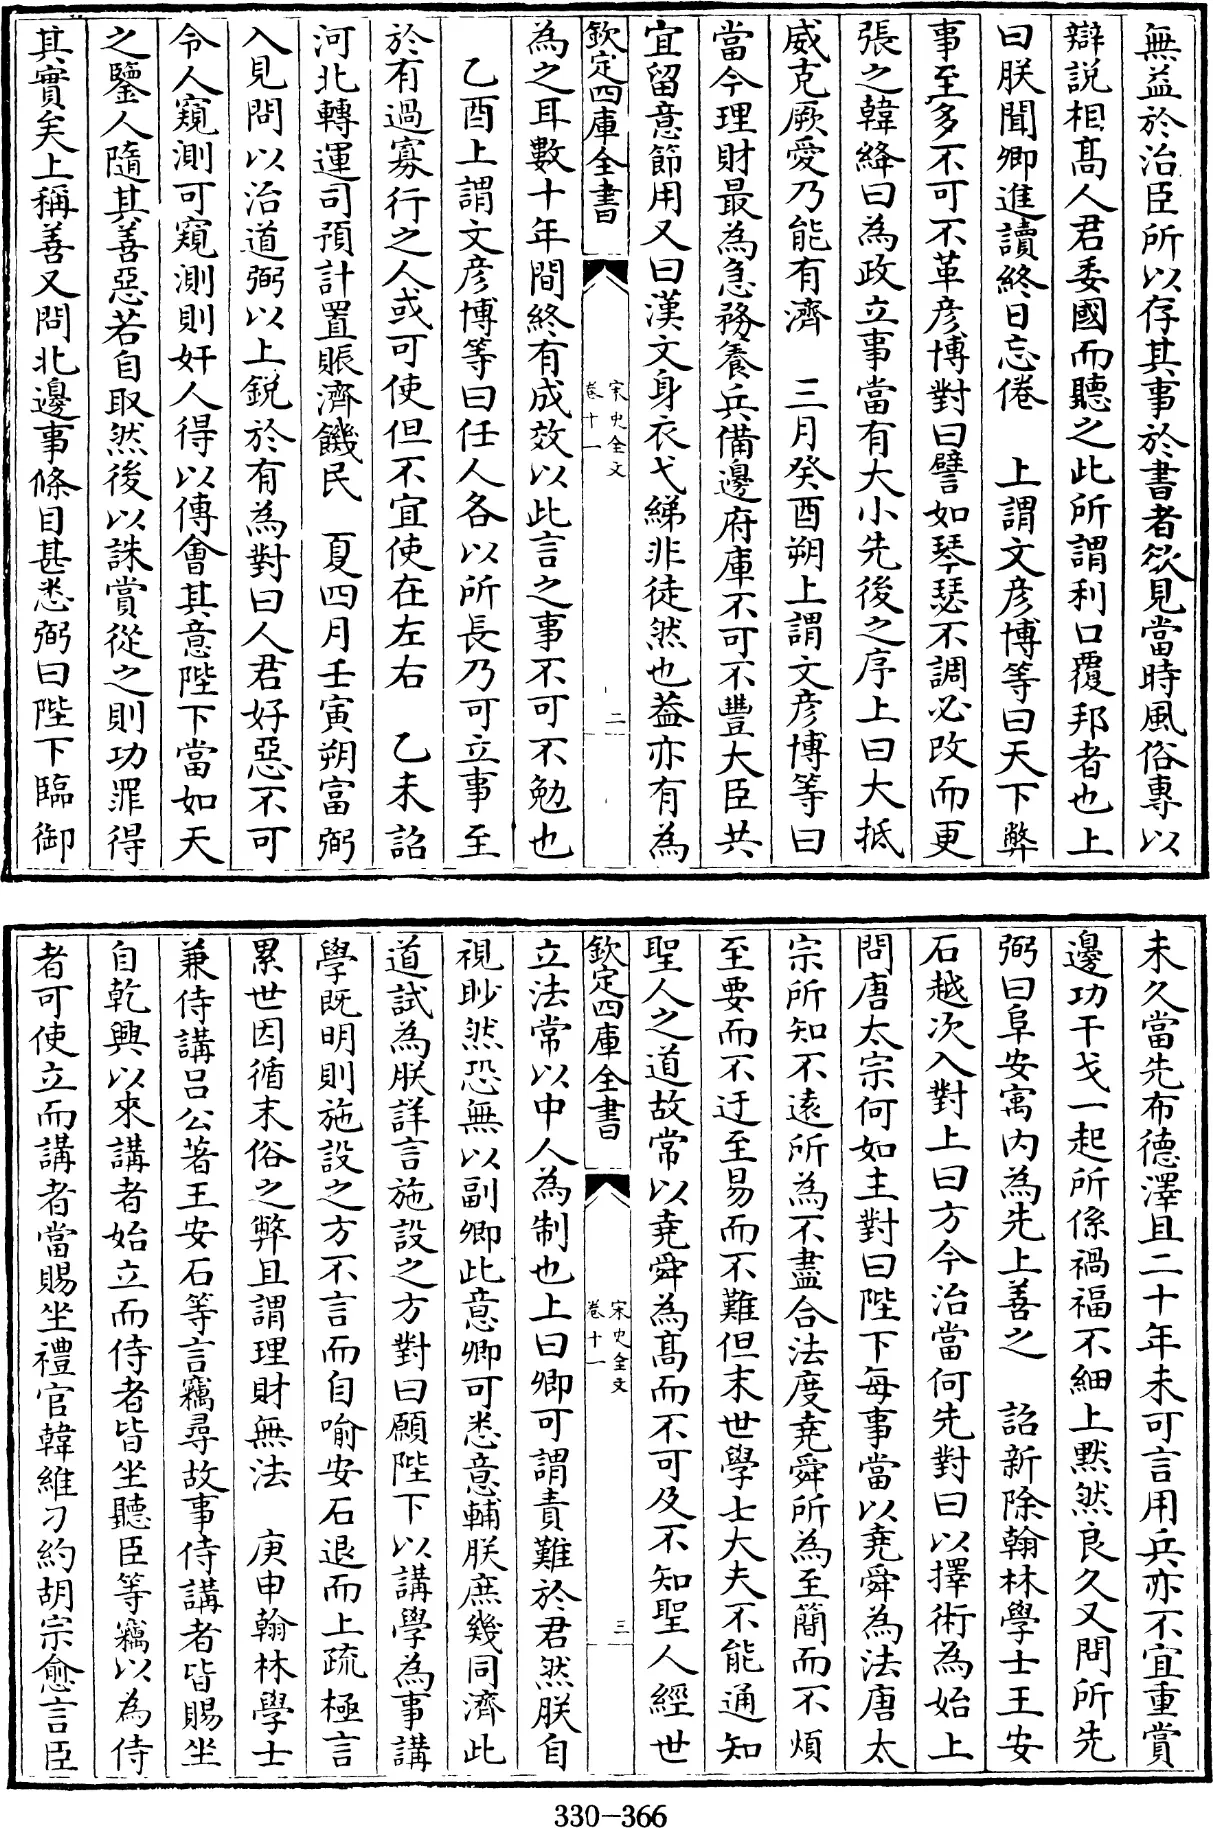 無益於治臣所以存其事於書者欲見當時風俗專以
辯說相高人君委國而聽之此所謂利口覆邦者也上
曰朕聞卿進讀終日忘倦　上謂文彥博等曰天下弊
事至多不可不革彥博對曰譬如琴瑟不調必改而更
張之韓絳曰為政立事當有大小先後之序上曰大抵
威克厥愛乃能有濟　三月癸酉朔上謂文彥博等曰
當今理財最為急務養兵備邊府庫不可不豐大臣共
宜留意節用又曰漢文身衣弋綈非徒然也葢亦有為
欽定四庫全書
宋史全文
卷十一
二
為之耳數十年間終有成效以此言之事不可不勉也
乙酉上謂文彥博等曰任人各以所長乃可立事至
於有過寡行之人或可使但不宜使在左右　乙未詔
河北轉運司預計置賬濟饑民　夏四月壬寅朔富弼
入見問以治道弼以上銳於有為對曰人君好惡不可
令人窺測可窺測則奸人得以傅會其意陛下當如天
之鑒人隨其善惡若自取然後以誅賞從之則功罪得
其實矣上稱善又問北邊事條目甚悉弼曰陛下臨御
未久當先布德澤且二十年未可言用兵亦不宜重賞
邊功干戈一起所係禍福不細上默然良久又問所先
弼曰阜安㝢內為先上善之　詔新除翰林學士王安
石越次入對上曰方今治當何先對曰以擇術為始上
問唐太宗何如主對曰陛下每事當以堯舜為法唐太
宗所知不遠所為不盡合法度堯舜所為至簡而不煩
至要而不迂至易而不難但末世學士大夫不能通知
聖人之道故常以堯舜為高而不可及不知聖人經世
欽定四庫全書
宋史全文
卷十一
三
立法常以中人為制也上曰卿可謂責難於君然朕自
視眇然恐無以副卿此意卿可悉意輔朕庶幾同濟此
道試為朕詳言施設之方對曰願陛下以講學為事講
學既明則施設之方不言而自喻安石退而上疏極言
累世因循末俗之弊且謂理財無法　庚申翰林學士
兼侍講呂公著王安石等言竊尋故事侍講者皆賜坐
自乾興以來講者始立而侍者皆坐聽臣等竊以為侍
者可使立而講者當賜坐禮官韓維刁約胡宗愈言臣
330-366